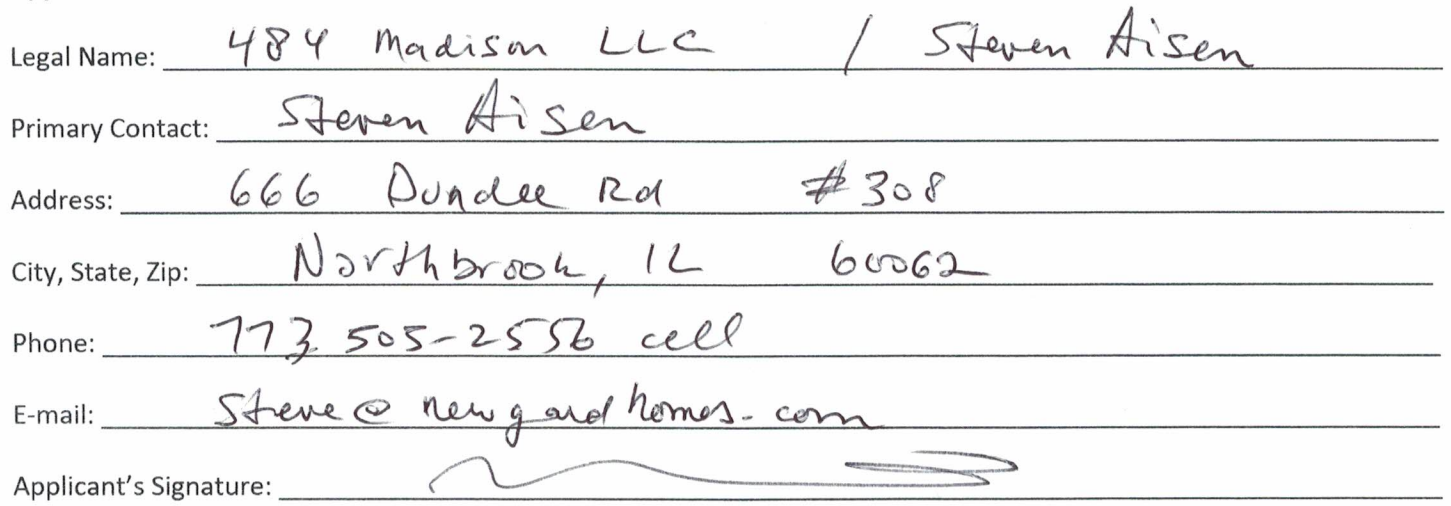 Legal Name: 484 Madison LLC / Steven Aisen
Primary Contact: Steven Aisen
Address: 666 Dundee Rd #308
City, State, Zip: Northbrook, IL 60062
Phone: 773 505-2556 cell
E-mail: Steve@newgardhomes.com
Applicant's Signature: